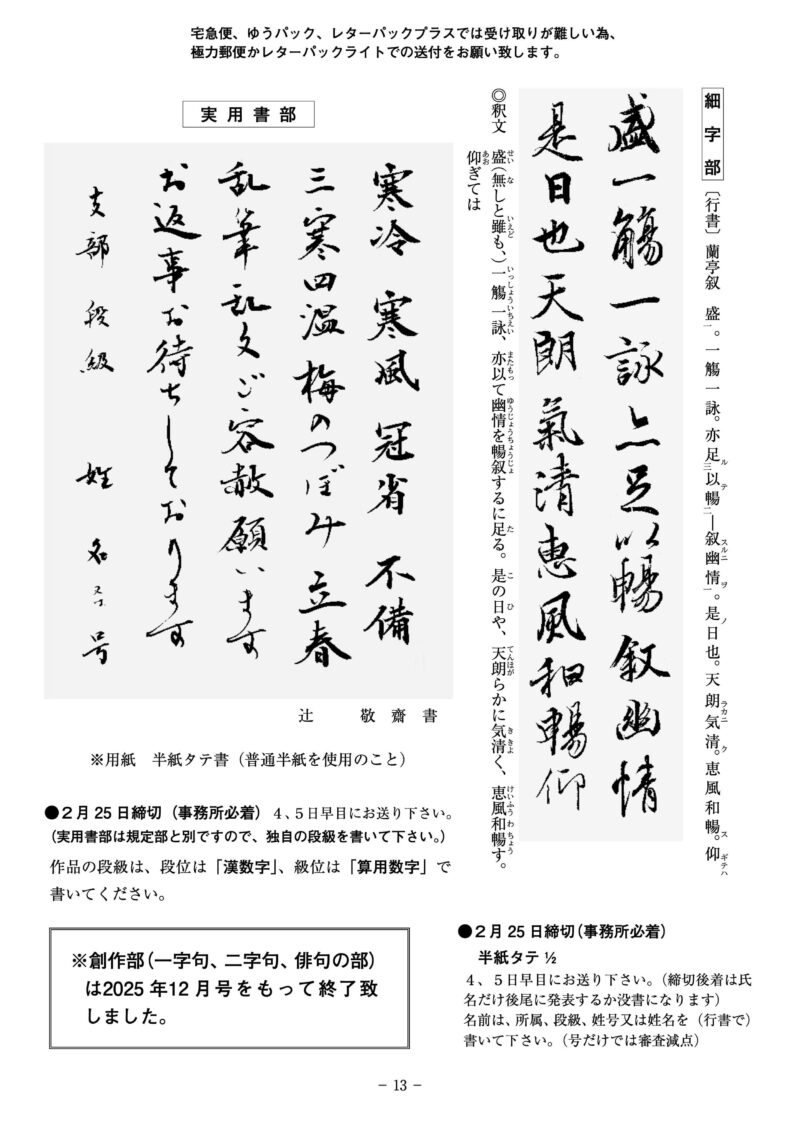 宅急便、ゆうパック、レターパックプラスでは受け取りが難しい為、
極力郵便かレターパックライトでの送付をお願い致します。
細字部
〔行書〕蘭亭叙　盛一。一觴一詠。亦足ル三以テ暢二―叙スルニ幽情ヲ一。是ノ日也。天朗ラカニ気清ク。恵風和暢ス。仰ギテハ
盛一觴一詠亦足以暢叙幽情
是日也天朗氣清恵風和暢仰
◎釈文　盛（無しと雖も、）一觴一詠、亦以て幽情を暢叙するに足る。是の日や、天朗らかに気清く、恵風和暢す。
仰ぎては
せい　な　いえど　いっしょういちえい　またもっ　ゆうじょうちょうじょ　た　こ　ひ　てんほが　ききよ　けいふうわちょう
あお
実用書部
寒冷　寒風　冠省　不備
三寒四温　梅のつぼみ　立春
乱筆乱文ご容赦願います
お返事お待ちしております
支部　段級　姓　名又は号
辻　敬齋書
※用紙　半紙タテ書（普通半紙を使用のこと）
●２月25日締切（事務所必着）４、５日早目にお送り下さい。
（実用書部は規定部と別ですので、独自の段級を書いて下さい。）
作品の段級は、段位は「漢数字」、級位は「算用数字」で
書いてください。
※創作部（一字句、二字句、俳句の部）
は2025年12月号をもって終了致
しました。
●２月25日締切（事務所必着）
半紙タテ½
４、５日早目にお送り下さい。（締切後着は氏
名だけ後尾に発表するか没書になります）
名前は、所属、段級、姓号又は姓名を（行書で）
書いて下さい。（号だけでは審査減点）
－13－